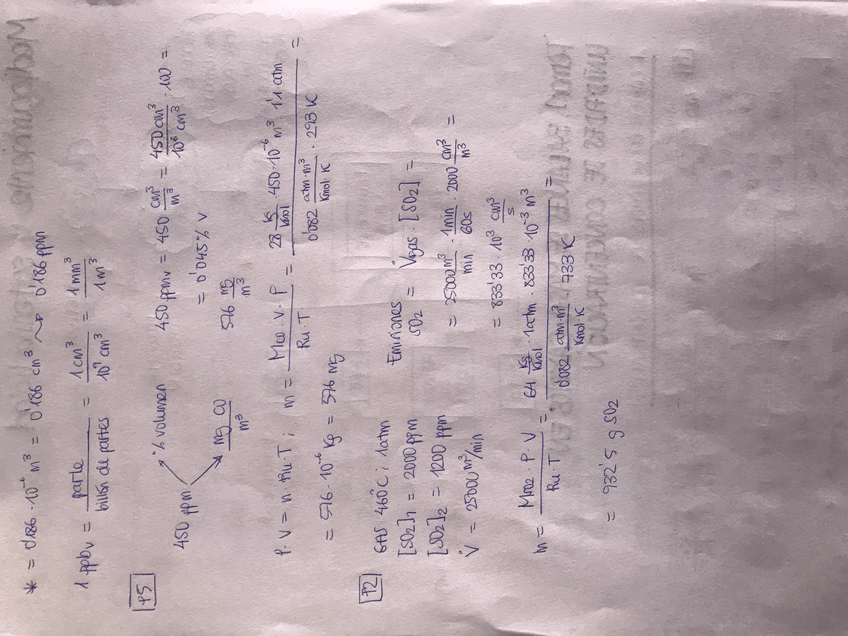 * = 0'186 · 10⁻⁶ m³ = 0'186 cm³ ⤳ 0'186 ppm
1 ppbv = parte / billón de partes = 1 cm³ / 10⁹ cm³ = 1 mm³ / 1 m³
P5
450 ppm → % volumen
→ mg CO / m³
450 ppmv = 450 cm³/m³ = 450 cm³ / 10⁶ cm³ · 100 =
= 0'045 % v
576 mg/m³
P · V = n · Ru · T ; m = Mco · V · P / Ru · T = 28 Kg/Kmol · 450 · 10⁻⁶ m³ · 1'1 atm / 0'082 atm · m³ / Kmol · K · 293 K =
= 576 · 10⁻⁶ Kg = 576 mg
P2
GAS 460°C ; 1 atm
[SO2]1 = 2000 ppm
[SO2]2 = 1200 ppm
V̇ = 25000 m³/min
Emisiones SO2 = V̇gas · [SO2] =
= 25000 m³/min · 1 min / 60 s · 2000 cm³/m³ =
= 833'33 · 10³ cm³/s
m = Mso2 · P · V / Ru · T = 64 Kg/Kmol · 1 atm · 833'33 · 10⁻³ m³ / 0'082 atm · m³ / Kmol · K · 733 K =
= 932'5 g SO2